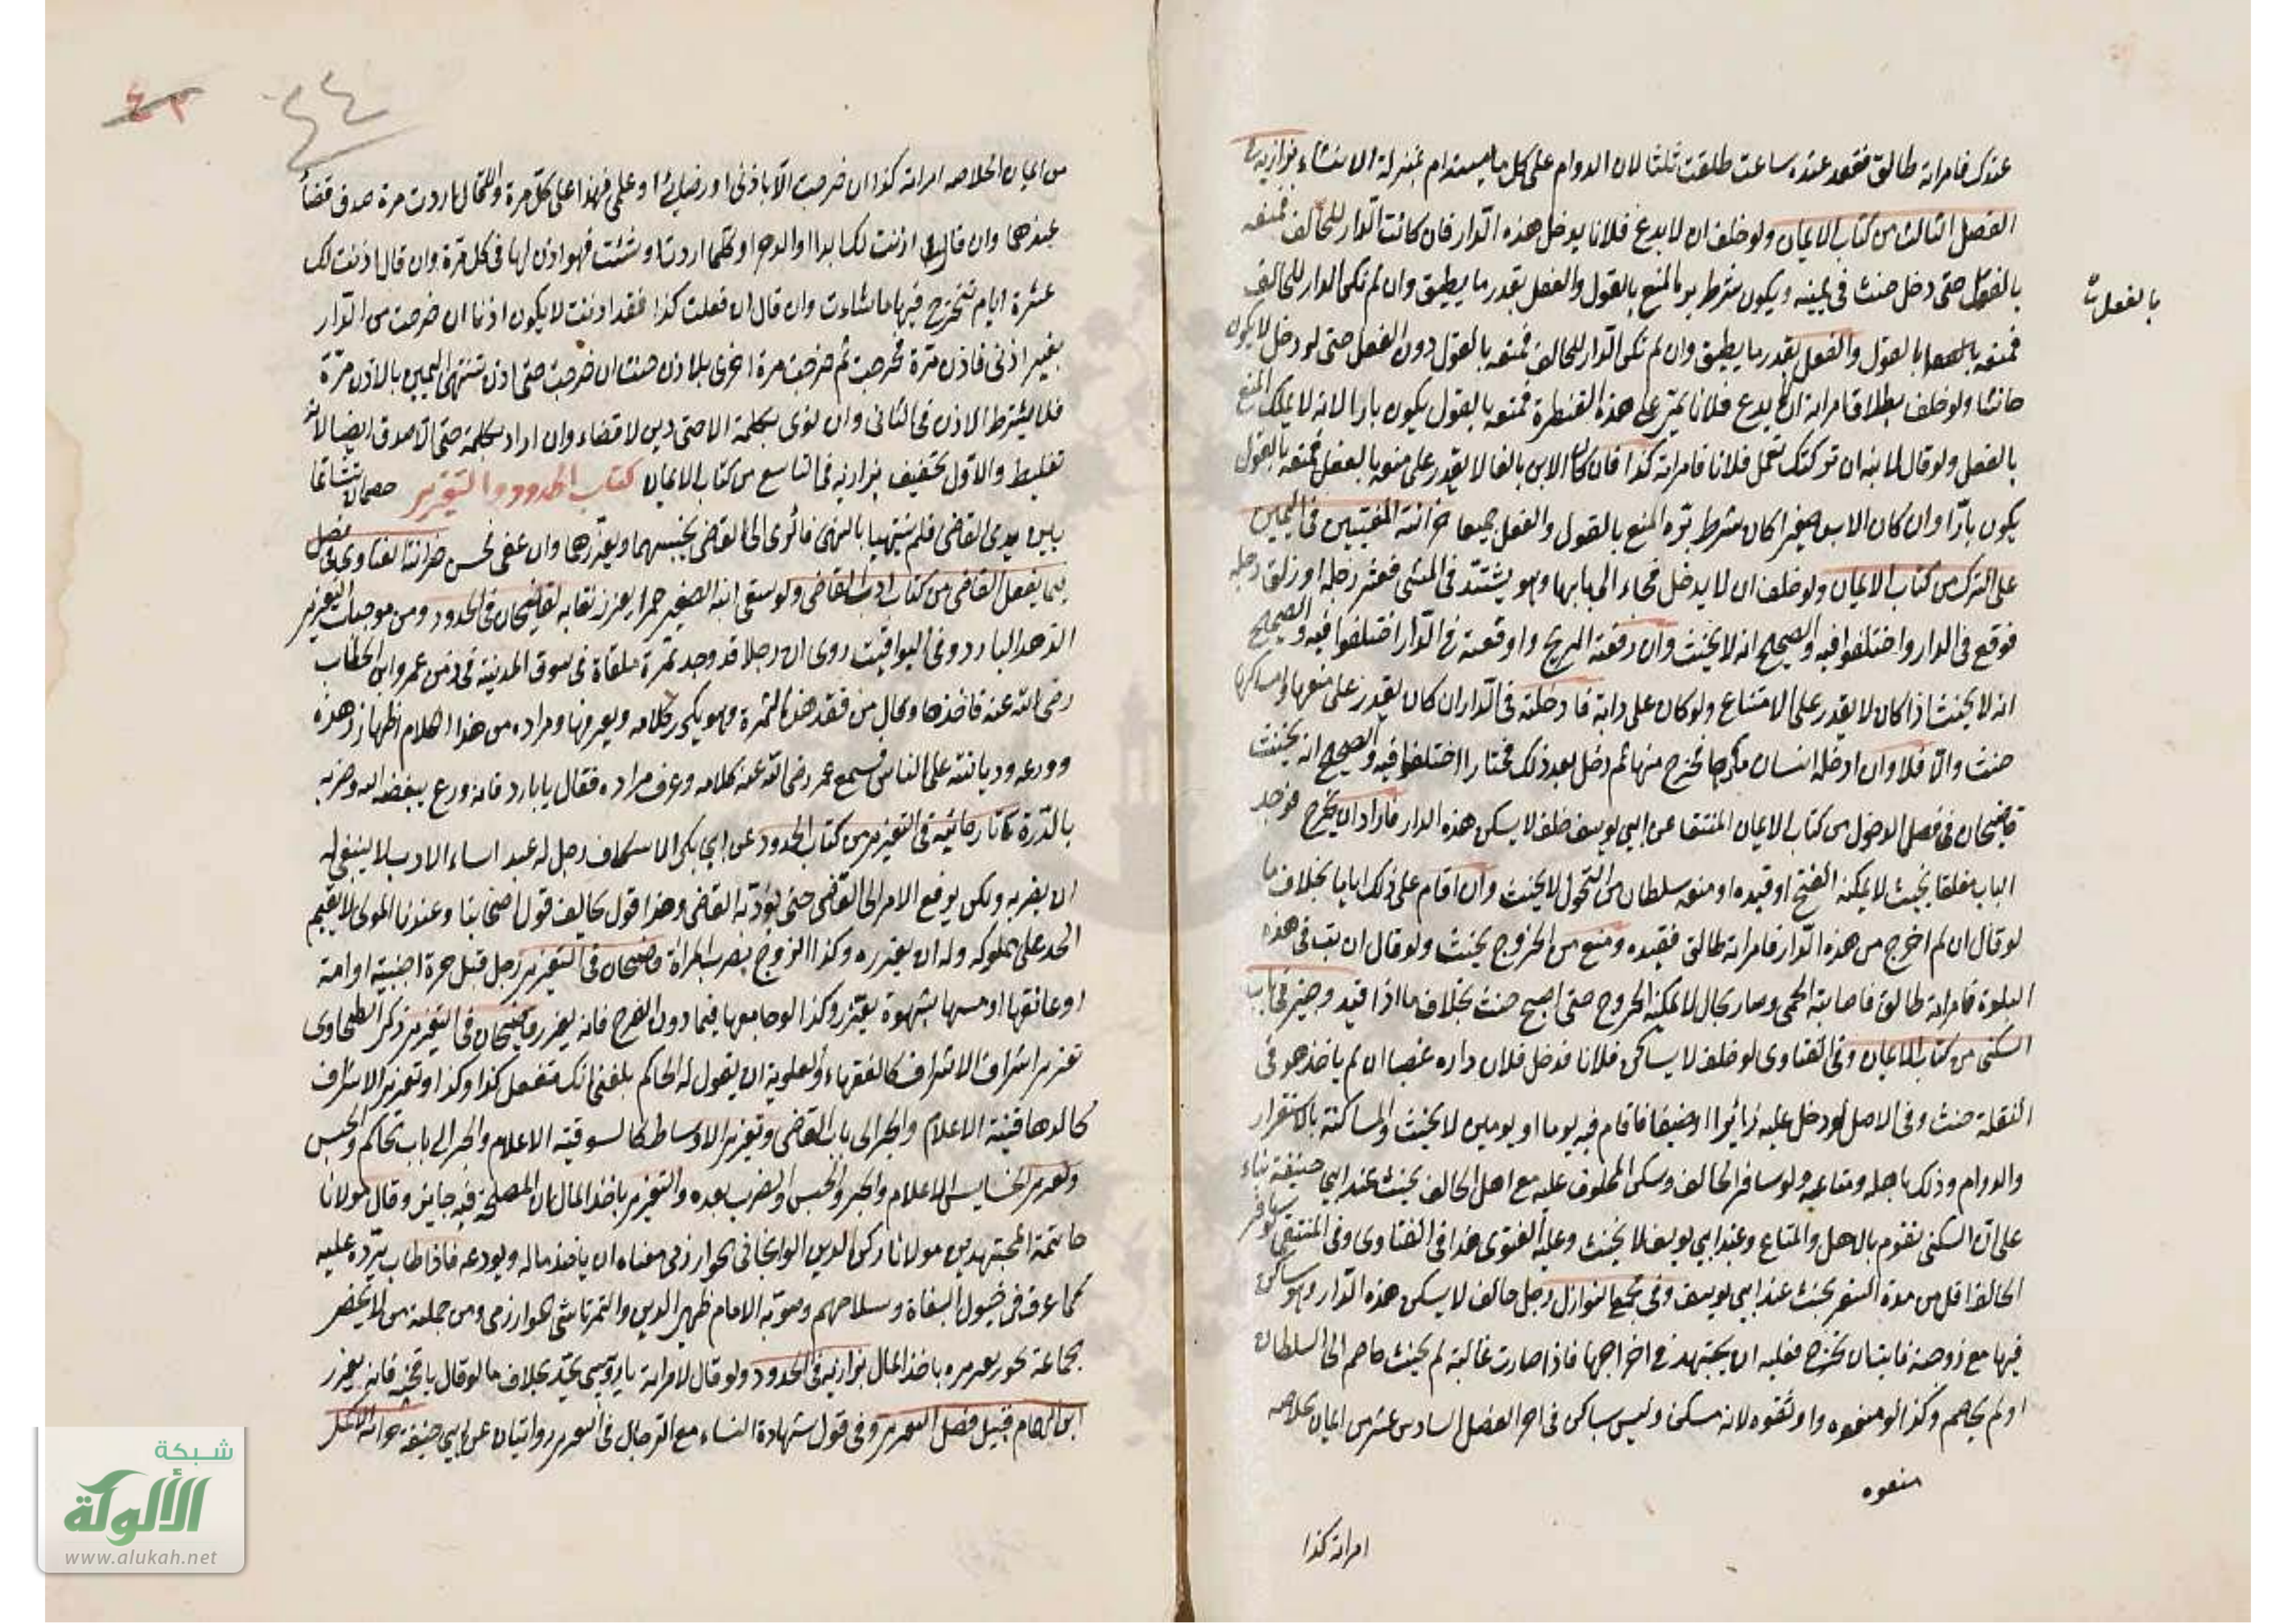 عندك فامراته طالق فقعد عنده ساعت طلقت ثلثا لان الدوام على كل ما يستدام بمنزلة الانشاء بزازية في
الفصل الثالث من كتاب الايمان ولو حلف ان لا يدع فلانا يدخل هذه الدار فان كانت الدار للحالف فمنعه
بالقول حتى دخل حنث في يمينه ويكون شرط بره المنع بالقول والفعل بقدر ما يطيق وان لم تكن الدار للحالف
بالفعل
فمنعه بالقول والفعل بقدر ما يطيق وان لم تكن الدار للحالف فمنعه بالقول دون الفعل حتى لو دخل لا يكون
حانثا ولو حلف بطلاق امراته ان لا يدع فلانا يمر على هذه القنطرة فمنعه بالقول يكون بارا لانه لا يملك المنع
بالفعل ولو قال لابنه ان تركتك تعمل فلانا فامراته كذا فان كان الابن بالغا لا يقدر على منعه بالفعل فمنعه بالقول
يكون بارّا وان كان الابن صغيرا كان شرط برّه المنع بالقول والفعل جميعا خزانة المفتيين في اليمين
على الترك من كتاب الايمان ولو حلف ان لا يدخل فجاء الى بابها وهو يشتدّ في المشى فعثر رجله او زلق رجله
فوقع في الدار واختلفوا فيه والصحيح انه لا يحنث وان دفعته الريح واوقعته في الدار اختلفوا فيه والصحيح
انه لا يحنث اذا كان لا يقدر على الامتناع ولو كان على دابة فادخلته في الدار ان كان يقدر على منعها وامساكها
حنث والّا فلا وان ادخله انسان مكرها فخرج منها ثم دخل بعد ذلك مختارا اختلفوا فيه والصحيح انه يحنث
قاضيخان في فصل الدخول من كتاب الايمان المنتقا عن ابي يوسف حلف لا يسكن هذه الدار فاراد ان يخرج فوجد
الباب مغلقا بحيث لا يمكنه الفتح او قيده او منعه سلطان من التحول لا يحنث وان اقام على ذلك اياما بخلاف ما
لو قال ان لم اخرج من هذه الدار فامراته طالق فقيده ومنع من الخروج يحنث ولو قال ان بت في هذه
البلدة فامراته طالق فاصابته الحمى وصار بحال لا يمكنه الخروج حتى اصبح حنث بخلاف ما اذا قيد وجيز في باب
السكنى من كتاب الايمان وفي الفتاوى لو حلف لا يساكن فلانا فدخل فلان داره غصبا ان لم ياخذ هو في
النقلة حنث وفي الاصل لو دخل عليه زائرا او ضيفا فاقام فيه يوما او يومين لا يحنث والمساكنة بالاستقرار
والدوام وذلك باهله ومتاعه ولو سافر الحالف وسكن المحلوف عليه مع اهل الحالف يحنث عند ابي حنيفة بناء
على ان السكنى تقوم بالاهل والمتاع وعند ابي يوسف لا يحنث وعليه الفتوى هذا في الفتاوى وفي المنتقى لو سافر
الحالف اقل من مدة السفر يحنث عند ابي يوسف وفي مجمع النوازل رجل حالف لا يسكن هذه الدار وهو ساكن
فيها مع زوجته فابت ان تخرج فعليه ان يجتهد في اخراجها فاذا صارت غالبة لم يحنث خاصم الى السلطان
او لم يخاصم وكذا لو منعوه واوثقوه لانه مسكن وليس بساكن في اخر الفصل السادس عشر من ايمان خلاصه
منعوه
امراته كذا
٤٤
٤٣
من ايمان الخلاصه امراته كذا ان خرجت الّا باذنى او رضائى او علمى فهذا على كل مرة وان قال اردت مرة صدق قضاءً
عندهما وان قال لها اذنت لك ابدا او الدهر او كلما اردت او شئت فهو اذن لها في كل مرّة وان قال اذنت لك
عشرة ايام تخرج فيها ما شاءت وان قال ان فعلت كذا فقد اذنت لا يكون اذنا ان خرجت من الدار
بغير اذنى فاذن مرّة فخرجت ثم خرجت مرة اخرى بلا اذن حنث ان خرجت حتى اذن تنتهى اليمين بالاذن مرّة
فلا يشترط الاذن في الثانى وان نوى بكلمة الا حتى دين لا قضاء وان اراد بكلمة حتى الا صدق ايضا لانه
تغليط والاول تخفيف بزازيه في التاسع من كتاب الايمان كتاب الحدود والتعزير خصمان تشاتما
بين يدى القاضى فلم ينتهيا بالنهى فالرأى الى القاضى يحبسهما ويعزرهما وان عفى فحسن خزانة الفتاوى في فصل
فيما يفعل القاضى من كتاب ادب القاضى ولو سقى ابنه الصغير خمرا يعزر نقابه لقاضيخان في الحدود ومن موجبات التعزير
الزهد البارد وفي اليواقيت روى ان رجلا قد وجد تمرة ملقاة في سوق المدينة في زمن عمر وابن الخطاب
رضى الله عنه فاخذها وقال من فقد هذه التمرة وهو يكرر كلامه ويعرفها ومراده من هذا الكلام اظهار زهده
وورعه وديانته على الناس فسمع عمر رضى الله عنه كلامه وعرف مراده فقال يا بارد فانه ورع يبغضه الله وضربه
بالدّرة تاتارخانيه في التعزير من كتاب الحدود عن ابي بكر الاسكاف رجل له عبد اساء الادب لا ينبغى له
ان يضربه ولكن يرفع الامر الى القاضى حتى يؤدّبه القاضى وهذا قول يخالف قول اصحابنا وعندنا المولى لا يقيم
الحد على مملوكه وله ان يعزره وكذا الزوج بضرب المراة قاضيخان في التعزير رجل قبّل حرة اجنبية او امة
او عانقها او مسها بشهوة يعزّر وكذا لو جامعها فيما دون الفرج فانه يعزر قاضيخان في التعزير ذكر الطحاوى
تعزير اشراف الاشراف كالفقهاء والعلوية ان يقول له الحاكم بلغنى انك تفعل كذا وكذا وتعزير الاشراف
كالدهاقنة الاعلام والجر الى باب القاضى وتعزير الاوساط كالسوقية الاعلام والجر الى باب الحاكم والحبس
وتعزير الخسايس الاعلام والجر والحبس والضرب بعده والتعزير باخذ المال ان المصلحة فيه جايز وقال مولانا
خاتمة المجتهدين مولانا ركن الدين الوانجانى الخوارزمى معناه ان ياخذ ماله ويودعه فاذا طاب يردّه عليه
كما عرف في خيول البغاة وسلاحهم وصوّبه الامام ظهير الدين والتمرتاشى الخوارزمى ومن جملته من لا يحضر
بجماعة يجوز تعزيره باخذ المال بزازيه في الحدود ولو قال لامراته يا روسبى يحد بخلاف ما لو قال يا قحبة فانه يعزر
ابن الهمام قبيل فصل التعزير وفي قول شهادة النساء مع الرجال في التعزير روايتان عن ابي حنيفة
شبكة
الألوكة
www.alukah.net